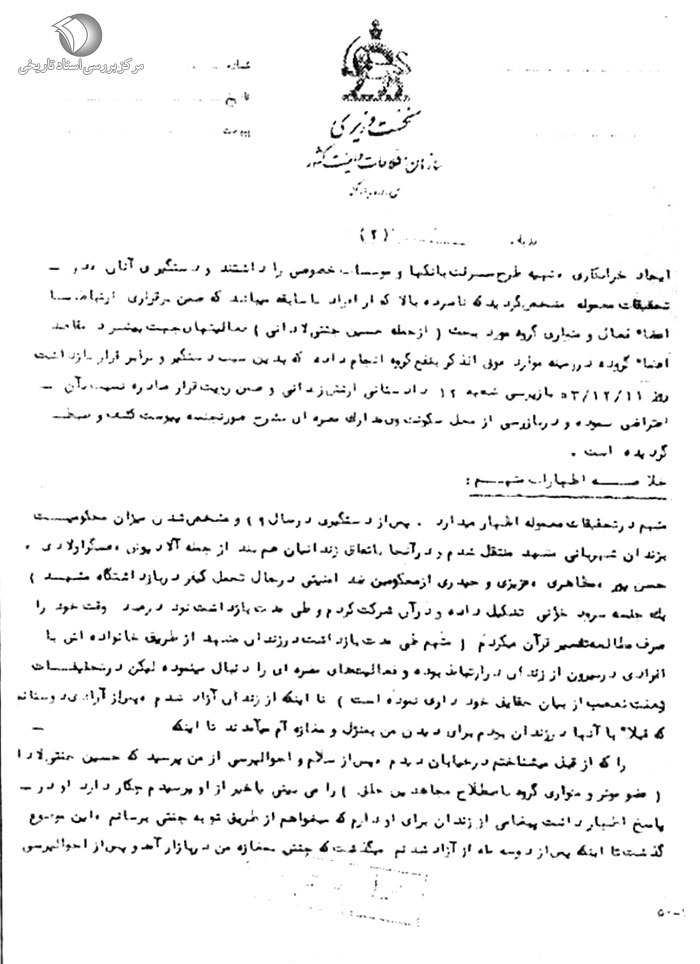 مرکز بررسی اسناد تاریخی
شماره
تاریخ
پیوست
نخست وزیری
سازمان اطلاعات و امنیت کشور
(۲)
ایجاد خرابکاری و تهیه طرح سرقت بانکها و موسسات خصوصی را داشتند و دستگیری آنان در
تحقیقات معموله مشخص گردید که نامبرده بالا که از افراد با سابقه میباشد که ضمن برقراری ارتباط با
اعضاء فعال و متواری گروه مورد بحث ( از جمله حسین جنتی لادانی ) فعالیتهای جهت پیشبرد مقاصد
اعضاء گروه در زمینه موارد فوق الذکر بنفع گروه انجام داده که بدین سبب دستگیر و برابر قرار بازداشت
روز ۳/۱۲/۱۱ بازپرسی شعبه ۱۲ دادستانی ارتش زندانی و ضمن رویت قرار صادره نسبت بآن
اعتراضی ننموده و در بازرسی از محل سکونت وی مدارک مضره ای بشرح صورتجلسه پیوست کشف و ضبط
گردیده است .
خلاصه اظهارات متهم :
متهم در تحقیقات معموله اظهار میدارد . پس از دستگیری در سال و مشخص شدن میزان محکومیت
بزندان شهربانی مشهد منتقل شدم و در آنجا باتفاق زندانیان هم بند از جمله آلادپوش ، عسگراولادی ،
حسن پور ، مظاهری ، عزیزی و حیدری ( از محکومین ضد امنیتی در حال تحمل کیفر در بازداشتگاه مشهد )
یک جلسه سرود خوانی تشکیل داده و در آن شرکت کردم و طی مدت بازداشت نود درصد وقت خود را
صرف مطالعه تفسیر قرآن میکردم ( متهم طی مدت بازداشت در زندان مشهد از طریق خانواده اش با
افرادی در بیرون از زندان در ارتباط بوده و فعالیتهای مضره ای را دنبال مینموده لیکن در تحقیقات
بعلت تعصب از بیان حقایق خود داری نموده است ) تا اینکه از زندان آزاد شدم و پس از آزادی دوستانم
که قبلا" با آنها در زندان بودم برای دیدن من بمنزل و مغازه ام میآمدند تا اینکه
را که از قبل میشناختم در خیابان دیدم و پس از سلام و احوالپرسی از من پرسید که حسین جنتی لادا
( عضو موثر و متواری گروه باصطلاح مجاهدین خلق ) را می بینی یا خیر از او پرسیدم چکار دارد او در
پاسخ اظهار داشت پیغامی از زندان برای او دارم که میخواهم از طریق تو به جنتی برسانم ، این موضوع
گذشت تا اینکه پس از دو سه ماه از آزاد شدنم میگذشت که جنتی بمغازه من در بازار آمد و پس از احوالپرسی
۵۰-